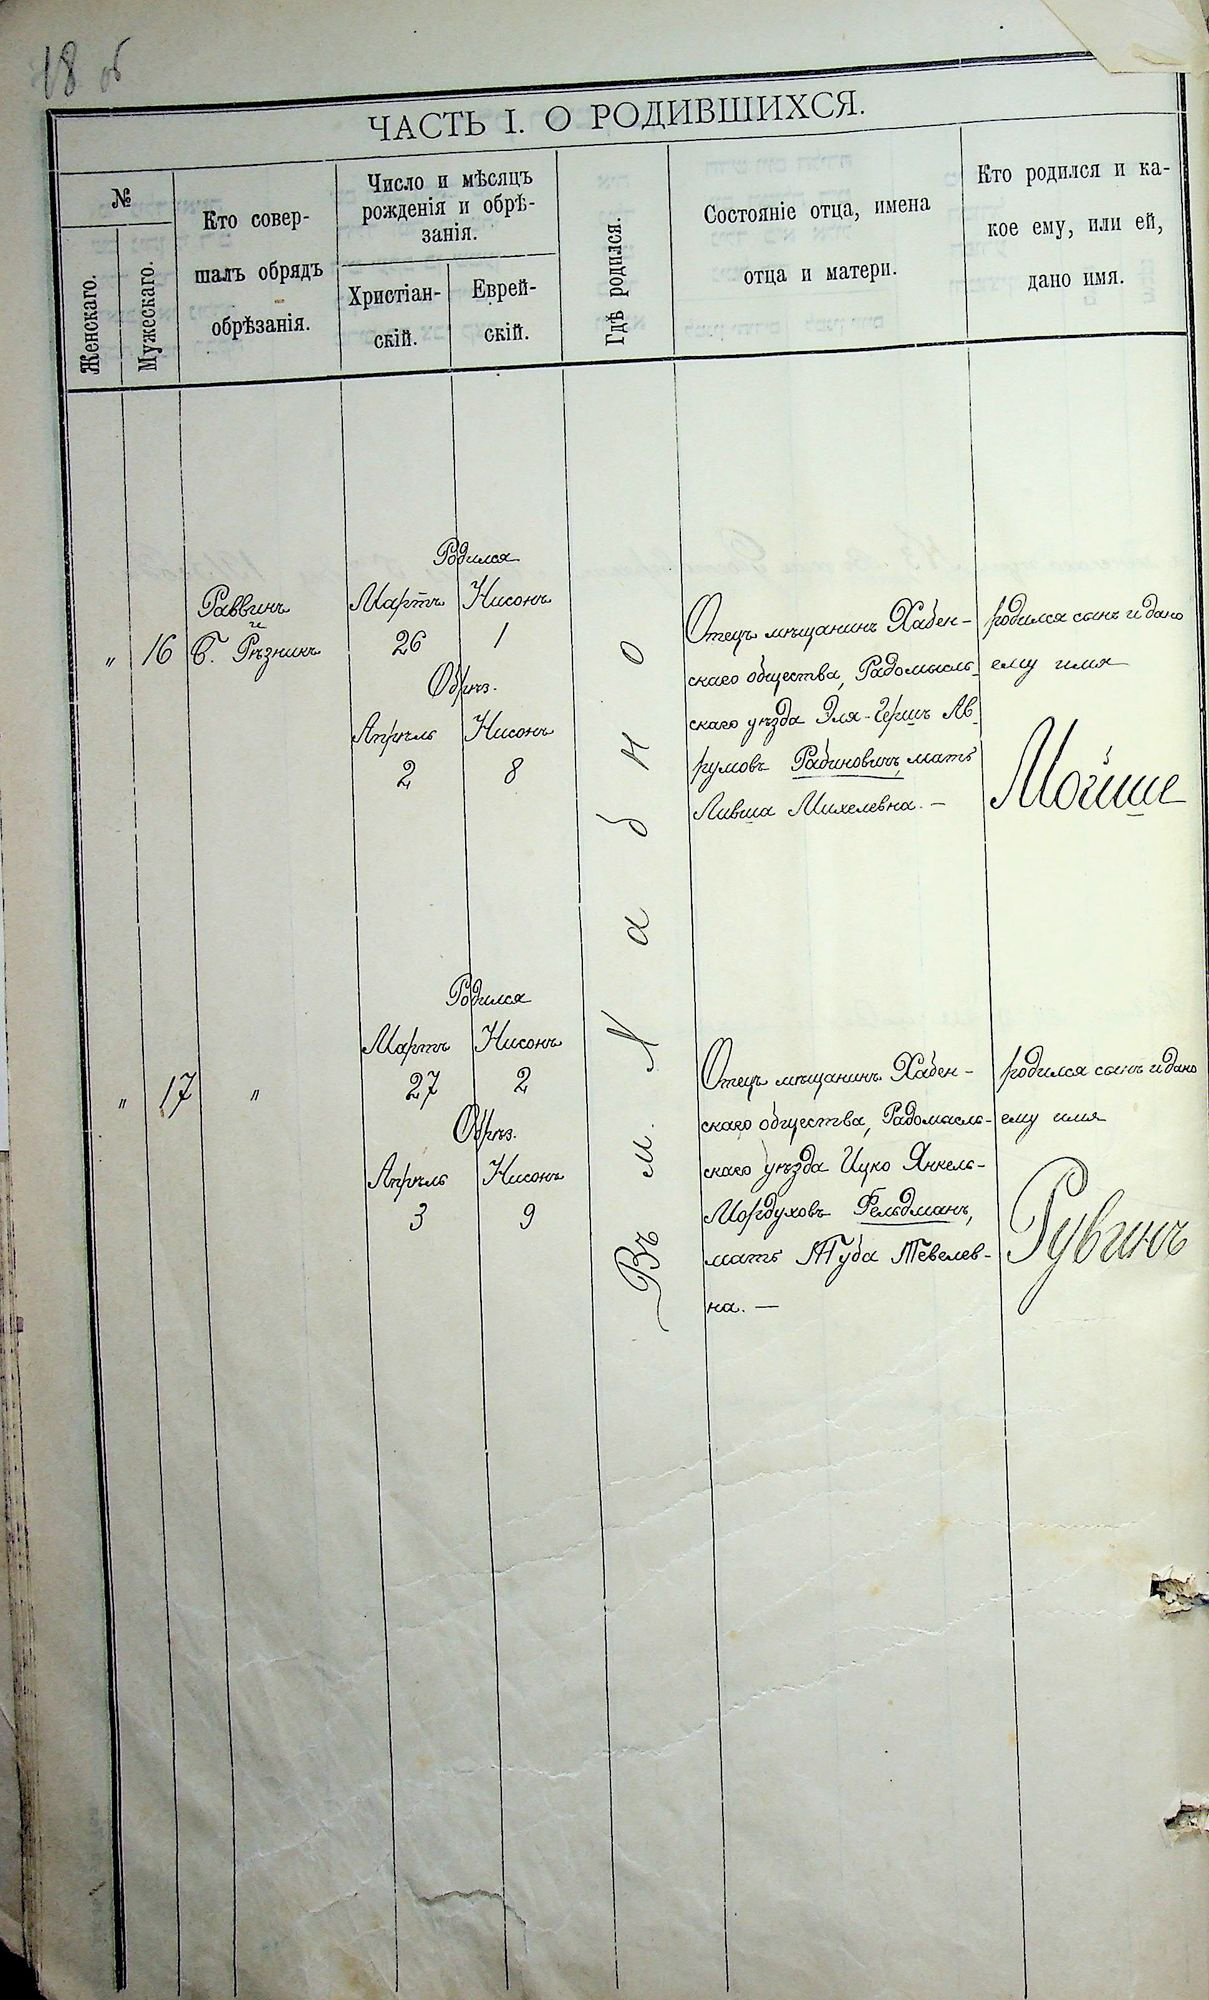 18 об
ЧАСТЬ I. О РОДИВШИХСЯ.
№
Женскаго.
Мужескаго.
Кто совер-
шалъ обрядъ
обрѣзанія.
Число и мѣсяцъ
рожденія и обрѣ-
занія.
Христіан-
скій.
Еврей-
скій.
Гдѣ родился.
Состояніе отца, имена
отца и матери.
Кто родился и ка-
кое ему, или ей,
дано имя.
"
16
Раввинъ
и
Б. Рѣзникъ
Родился
Мартъ Нисонъ
26 1
Обрѣз.
Апрѣль Нисонъ
2 8
Въ м. Хабно
Отецъ мѣщанинъ Хабен-
скаго общества, Радомысль-
скаго уѣзда Эля-Гершъ Ав-
румовъ Рабиновичъ, мать
Ливша Михелевна. —
родился сынъ и дано
ему имя
Мойше
"
17
"
Родился
Мартъ Нисонъ
27 2
Обрѣз.
Апрѣль Нисонъ
3 9
Отецъ мѣщанинъ Хабен-
скаго общества, Радомысль-
скаго уѣзда Ицко Янкель-
Мордуховъ Фельдманъ,
мать Туба Тевелев-
на. —
родился сынъ и дано
ему имя
Рувинъ